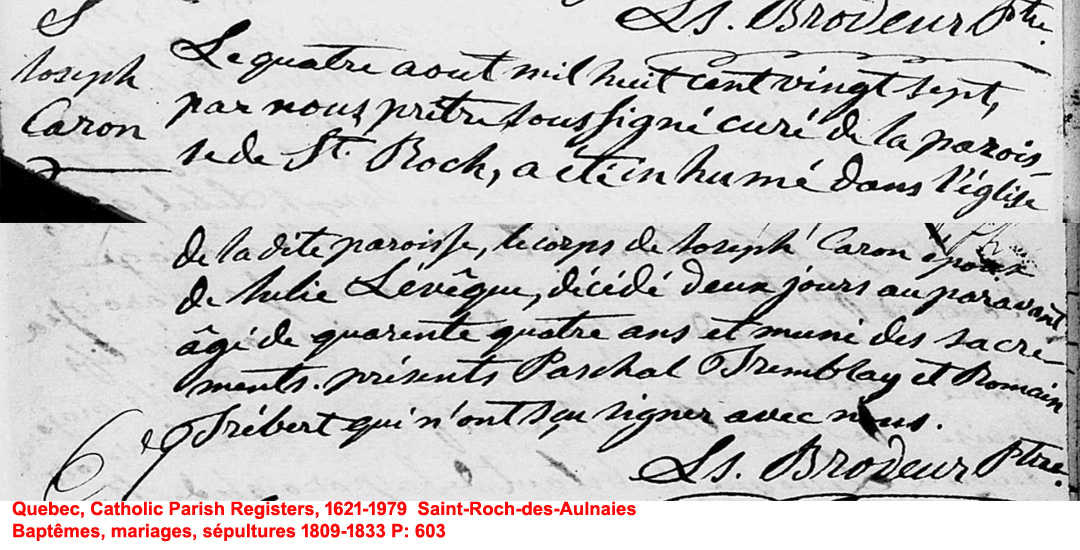 Ls. Brodeur Ptre.
S
Joseph
Caron
Le quatre aout mil huit cent vingt sept,
par nous prêtre soussigné curé de la parois-
se de St. Roch, a été inhumé dans l'église
de la dite paroisse, le corps de Joseph Caron époux
de Julie Lévêque, décédé deux jours auparavant
âgé de quarente quatre ans et muni des sacre-
ments. présents Paschal Tremblay et Romain
qui n'ont sçu signer avec nous.
Ls. Brodeur Ptre.
Quebec, Catholic Parish Registers, 1621-1979 Saint-Roch-des-Aulnaies
Baptêmes, mariages, sépultures 1809-1833 P: 603